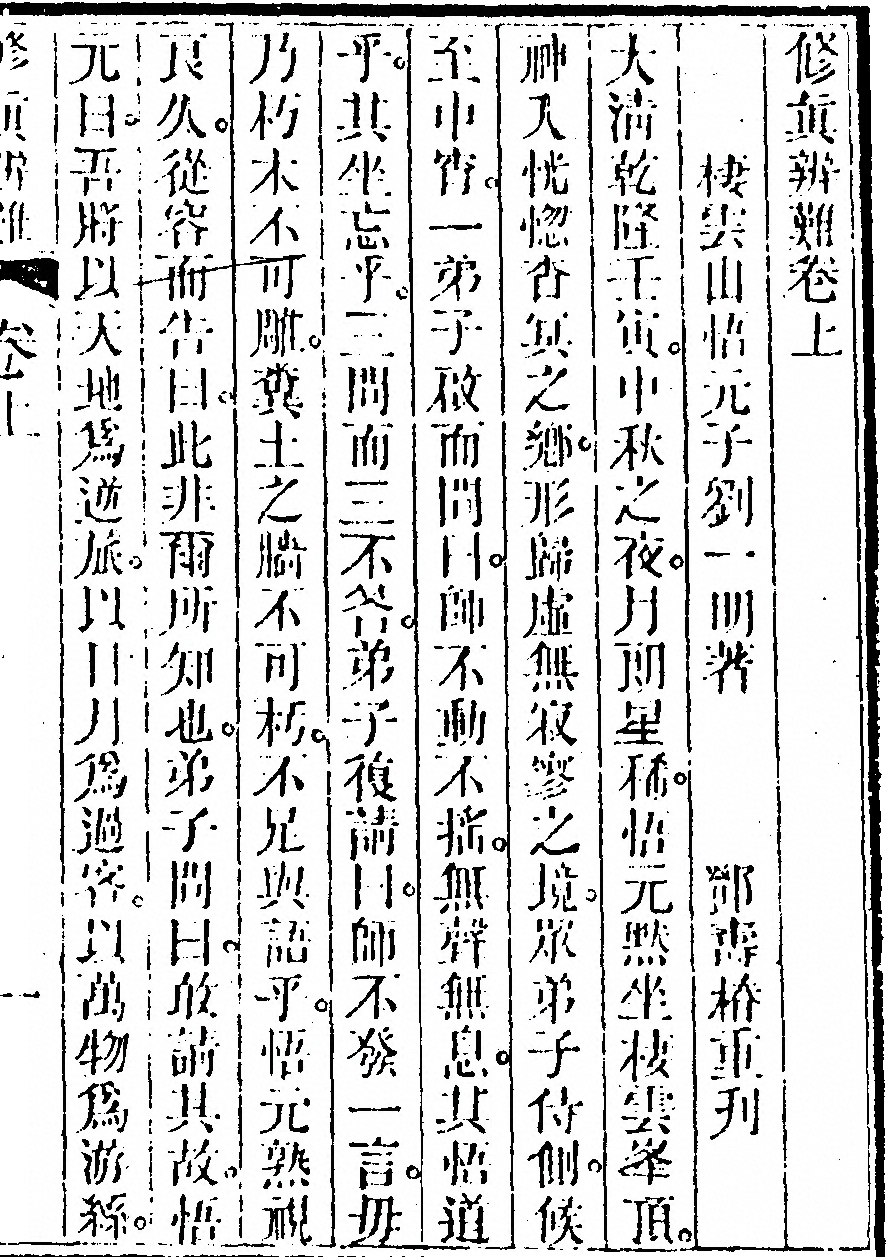 修真辨難卷上
棲雲山悟元子劉一明著　鄧壽椿重刊
大清乾隆壬寅。中秋之夜。月朗星稀。悟元默坐棲雲峯頂。
神入恍惚杳冥之鄉。形歸虛無寂寥之境。眾弟子侍側。候
至中宵。一弟子啟而問曰。師不動不搖。無聲無息。其悟道
乎。其坐忘乎。三問而三不答。弟子復請曰。師不發一言。毋
乃朽木不可雕。糞土之牆不可杇。不足與語乎。悟元熟視
良久。從容而告曰。此非爾所知也。弟子問曰。敢請其故。悟
元曰。吾將以天地爲逆旅。以日月爲過客。以萬物爲游絲。
修真辨難　卷上　一